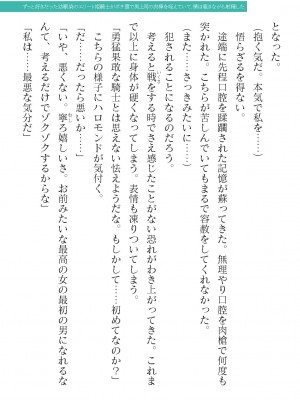 ずっと好きだった幼馴染のエリート姫騎士が
の肉棒を咥えていて、僕は覗きながら射精した
となった。
（抱く気だ。本気で私を……）
悟らざるを得ない。
途端に先程口腔を蹂躙された記憶が蘇ってきた。無理やり口腔を肉槍で何度も
突かれた。こちらが苦しんでいてもまるで容赦をしてくれなかった。
（また……さっきみたいに……）
犯されることになるのだろう。
考えると戦をする時でさえ感じたことがない恐れがわき上がってきてしまう。これま
で以上に身体が硬くなってしまう。表情も凍りついてしまう。
こちらの様子にハロモンドが気付く。
「勇猛果敢な騎士とは思えない怯えようだな。もしかして……初めてなのか？」
「だ……だったら悪いか……」
「いや、悪くない。寧ろ嬉しいさ。お前みたいな最高の女の最初の男になれるな
んて、考えるだけでゾクゾクするからな」
「私は……最悪な気分だ」